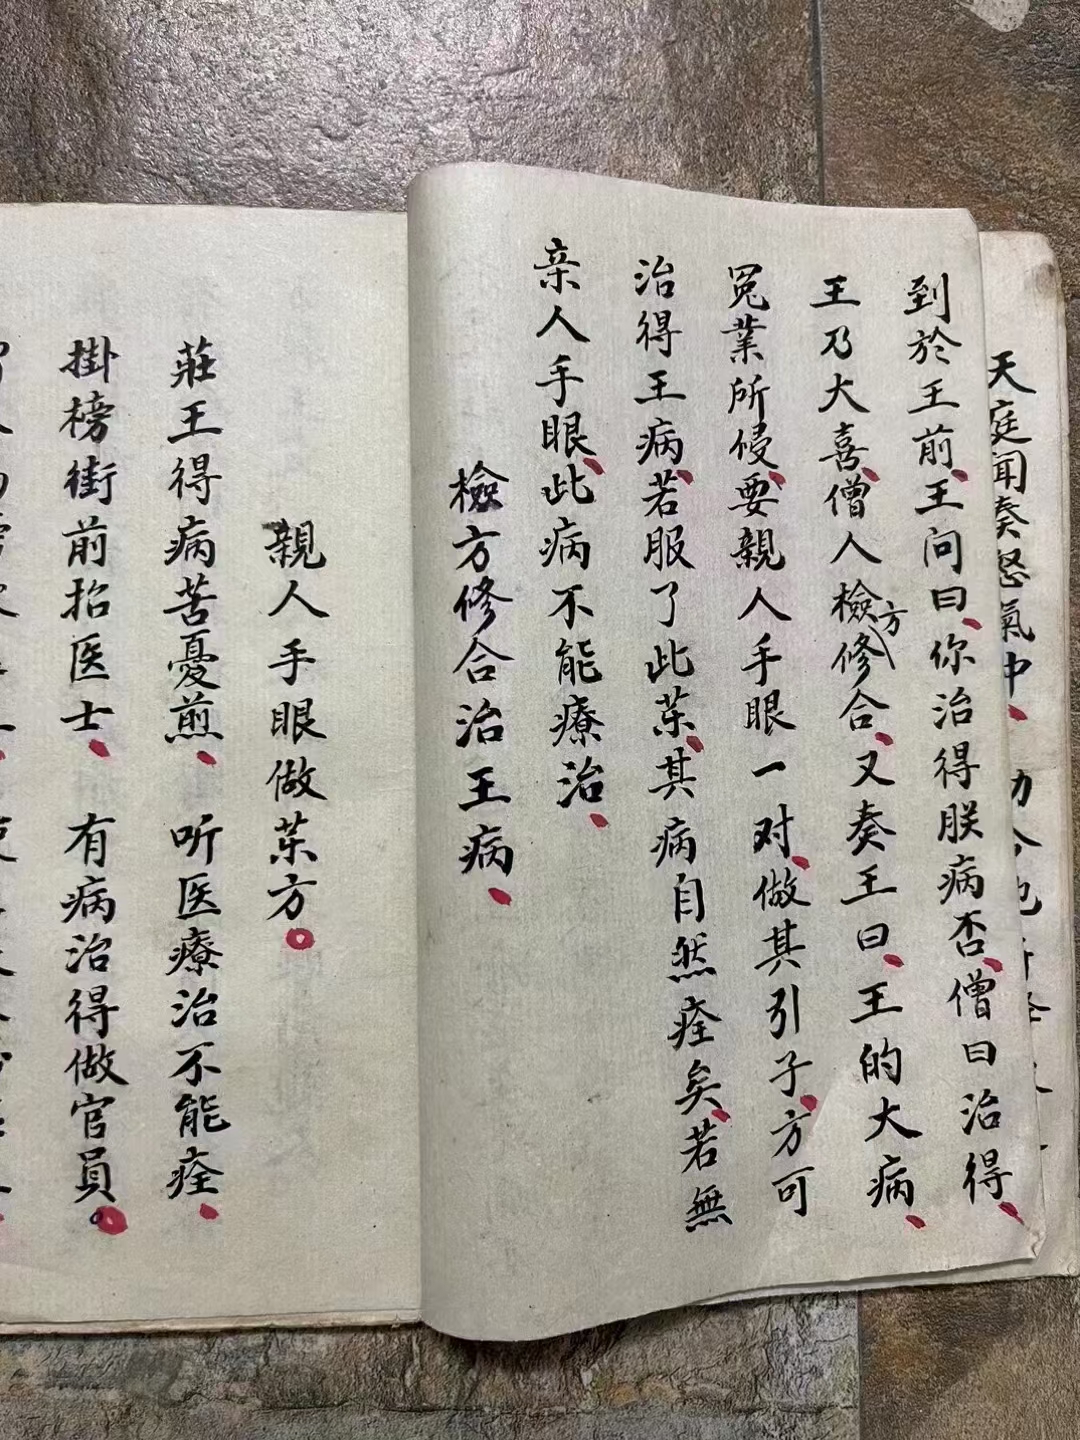 天庭闻奏怒氣中、
到於王前、王问曰、你治得朕病否、僧曰治得、
王乃大喜、僧人檢方修合、又奏王曰、王的大病、
冤業所侵、要親人手眼一对、做其引子、方可
治得王病、若服了此茱、其病自然痊矣、若無
亲人手眼、此病不能療治、
檢方修合治王病、
親人手眼做茱方。
莊王得病苦憂煎、听医療治不能痊、
掛榜街前招医士、有病治得做官員。